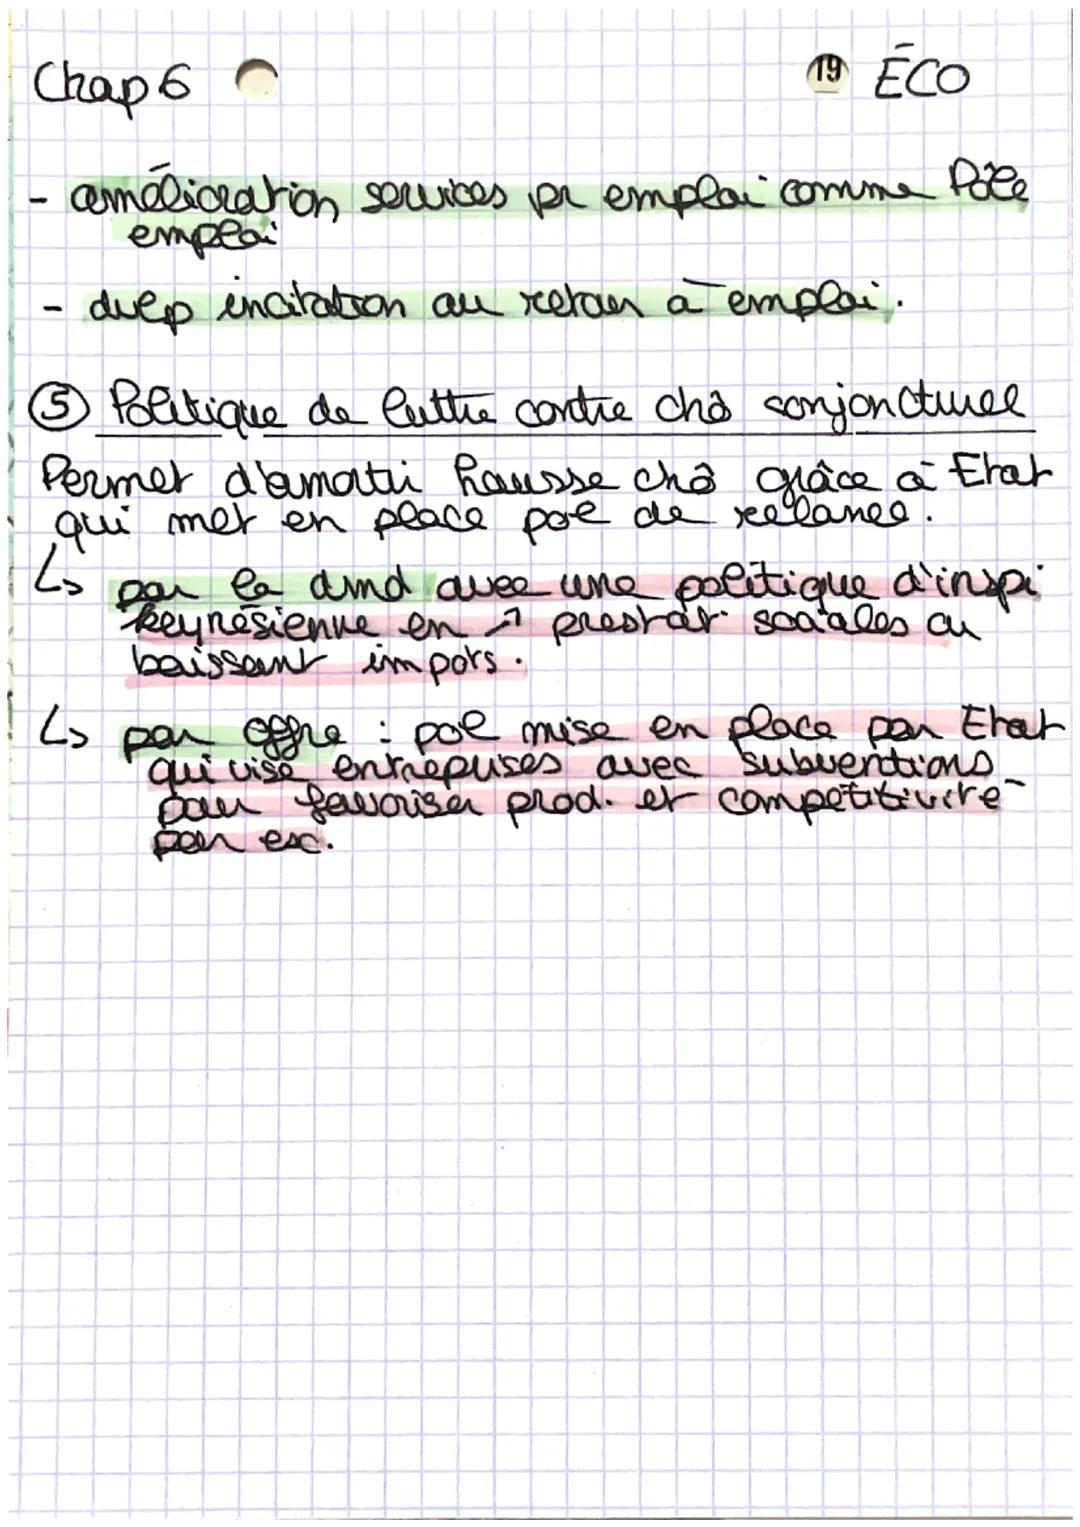 Chap 6
19 ÉCO
- amélioration services pr emploi comme Pôle
emploi
- dvlp incitation au retour à emploi.
⑤ Politique de lutte contre chô conjoncturel
Permet d'amortir hausse chô grâce à Etat
qui met en place pol de relance.
↳ par la dmd avec une politique d'inspi
keynésienne en ↗ prestat° sociales ou
baissant impots.
↳ par offre : pol mise en place par Etat
qui vise entreprises avec subventions
pour favoriser prod. et compétitivité
par esc.